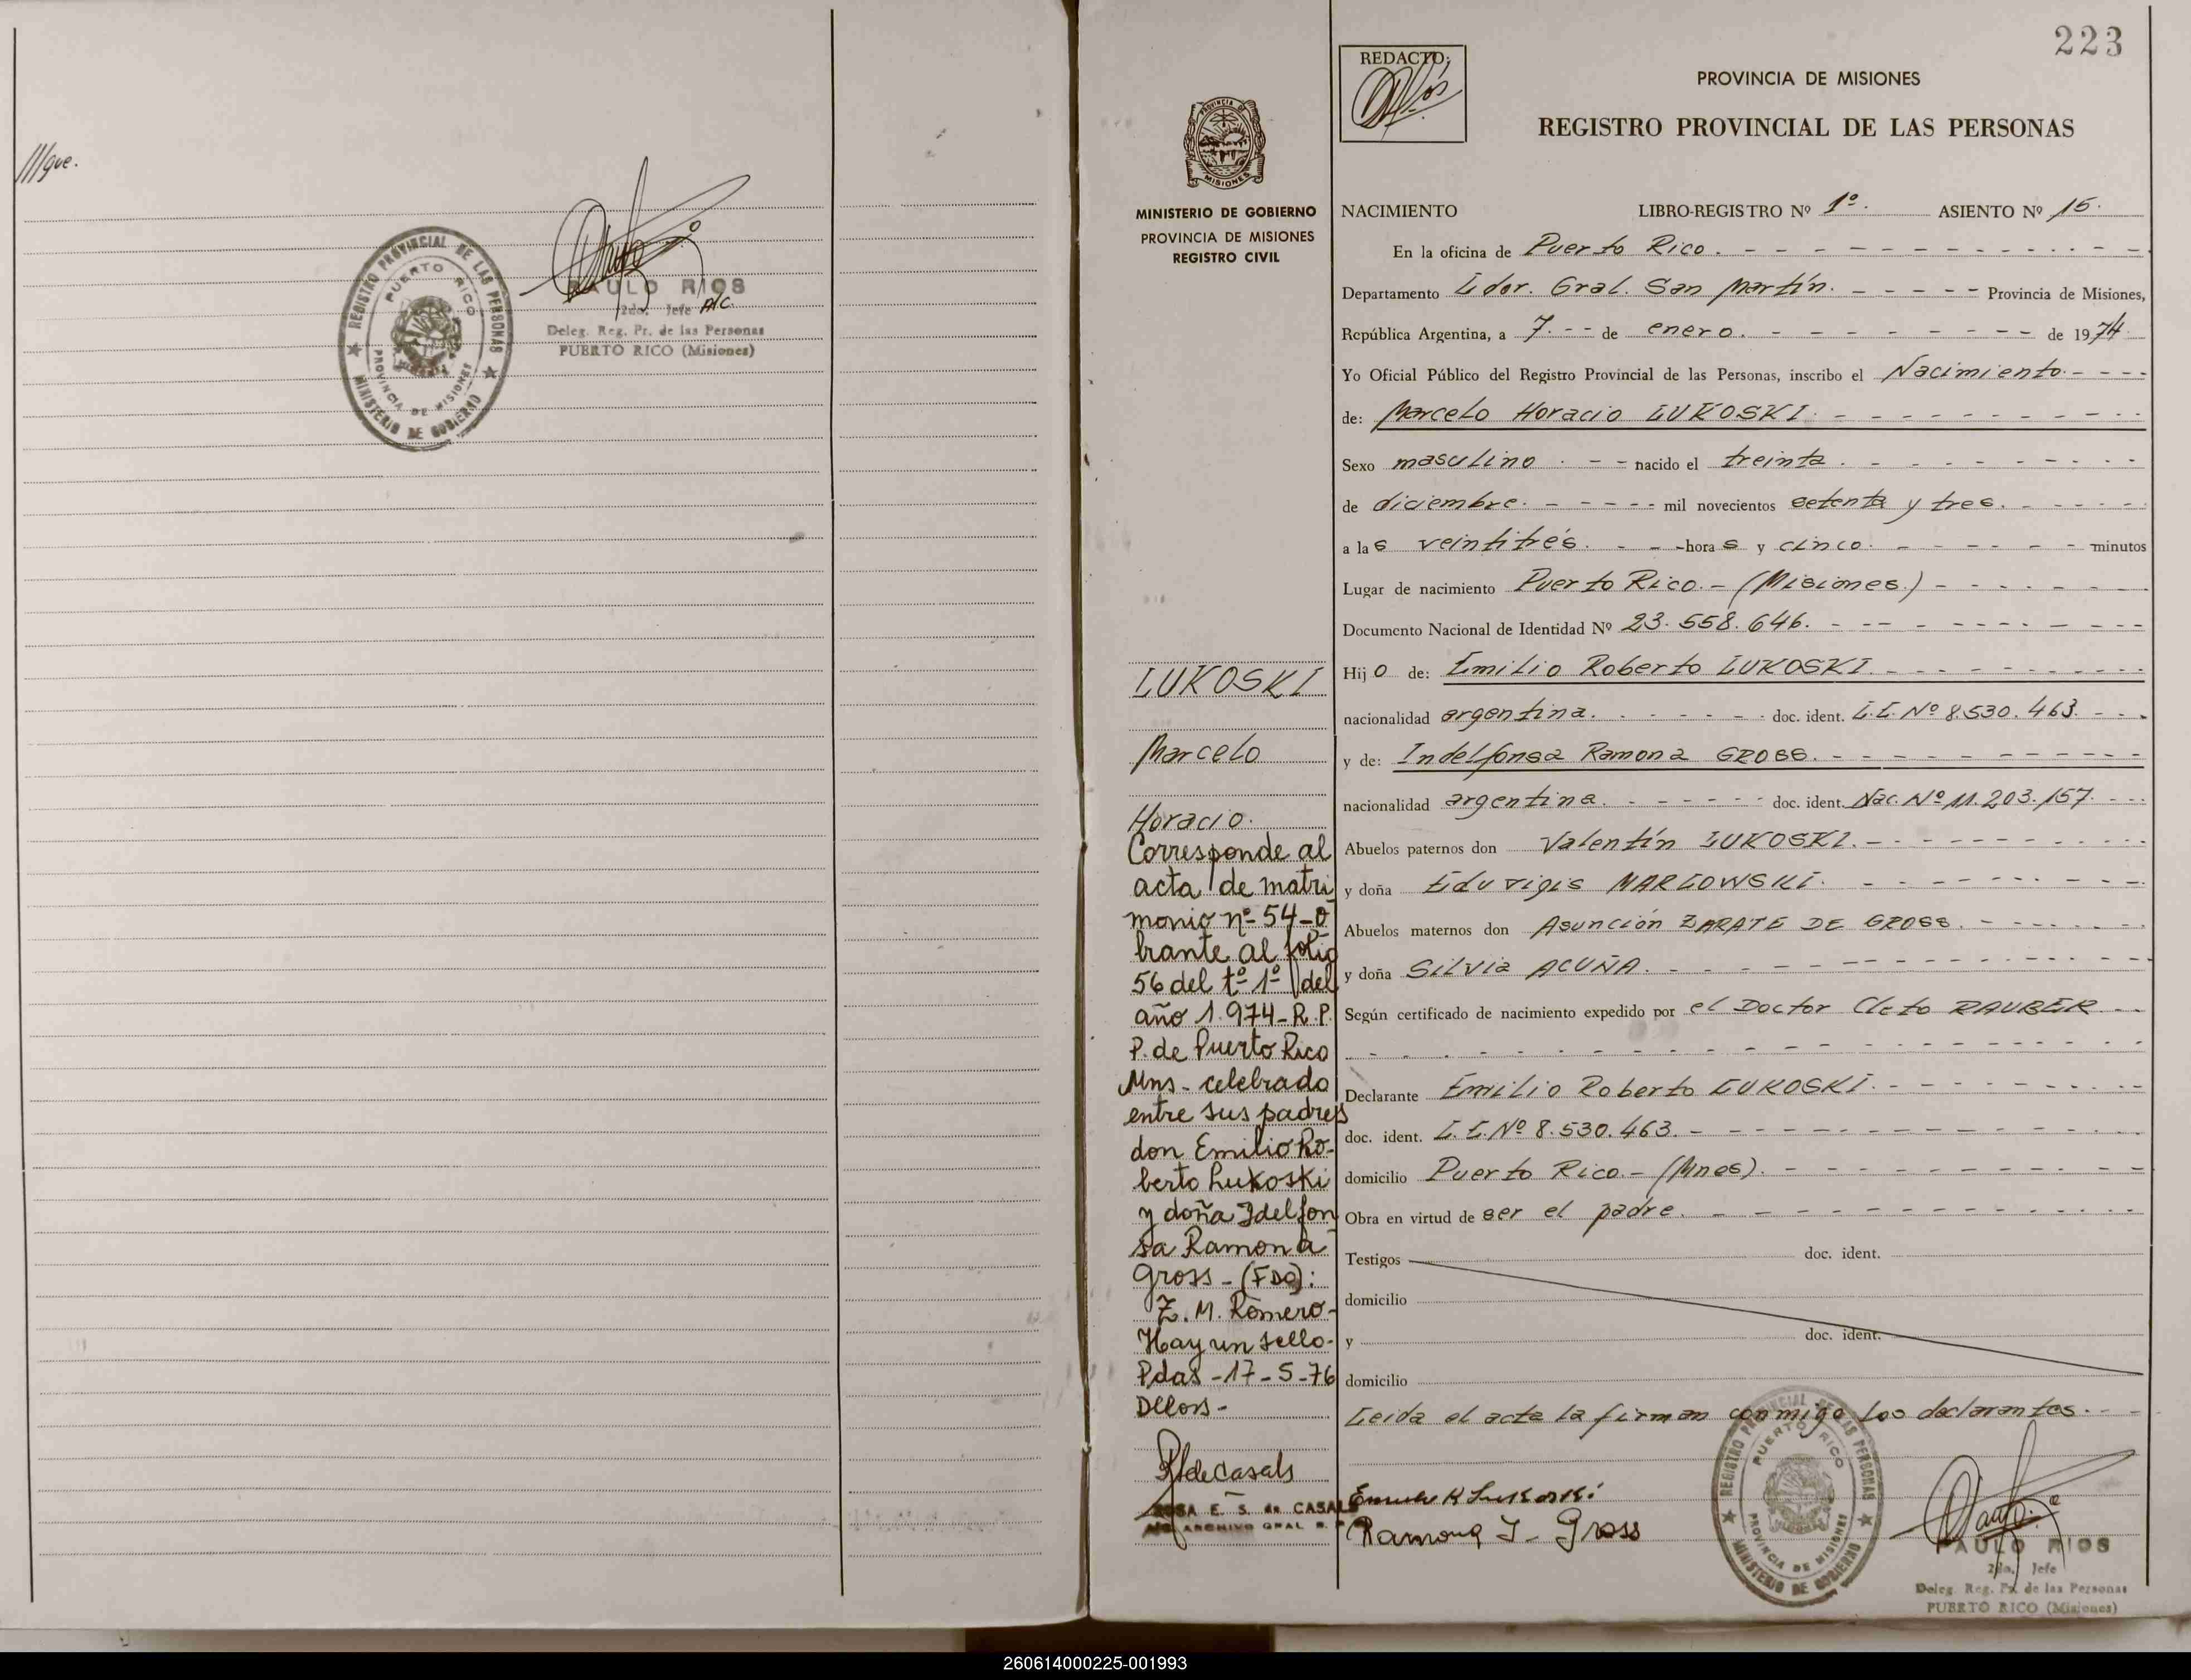 ///que.
REGISTRO PROVINCIAL DE LAS PERSONAS
PUERTO RICO
PROVINCIA DE MISIONES
MINISTERIO DE GOBIERNO
PAULO RIOS
2do. Jefe A/C.
Deleg. Reg. Pr. de las Personas
PUERTO RICO (Misiones)
223
REDACTO:
PROVINCIA DE MISIONES
REGISTRO PROVINCIAL DE LAS PERSONAS
PROVINCIA DE
MISIONES
MINISTERIO DE GOBIERNO
PROVINCIA DE MISIONES
REGISTRO CIVIL
NACIMIENTO LIBRO-REGISTRO Nº 1º. ASIENTO Nº 15.
En la oficina de Puerto Rico.
Departamento Ldor. Gral. San Martín. Provincia de Misiones,
República Argentina, a 7. de enero. de 1974.
Yo Oficial Público del Registro Provincial de las Personas, inscribo el Nacimiento
de: Marcelo Horacio LUKOSKI.
Sexo masculino nacido el treinta.
de diciembre. mil novecientos setenta y tres.
a las veintitrés. horas y cinco. minutos
Lugar de nacimiento Puerto Rico.- (Misiones.)
Documento Nacional de Identidad Nº 23.558.646.
Hijo de: Emilio Roberto LUKOSKI.
nacionalidad argentina. doc. ident. L.E. Nº 8.530.463.
y de: Indelfonsa Ramona GROSS.
nacionalidad argentina. doc. ident. Nac. Nº 11.203.157.
Abuelos paternos don Valentín LUKOSKI.
y doña Eduvigis MARLOWSKI.
Abuelos maternos don Asunción ZARATE DE GROSS.
y doña Silvia ACUÑA.
Según certificado de nacimiento expedido por el Doctor Cleto RAUBER
Declarante Emilio Roberto LUKOSKI.
doc. ident. L.E. Nº 8.530.463.
domicilio Puerto Rico.- (Mnes).
Obra en virtud de ser el padre.
Testigos doc. ident.
domicilio
y doc. ident.
domicilio
Leida el acta la firman conmigo los declarantes.
LUKOSKI
Marcelo
Horacio.
Corresponde al
acta de matri
monio nº 54-o
brante al folio
56 del tº 1º del
año 1.974-R.P.
P. de Puerto Rico
Mns- celebrado
entre sus padres
don Emilio Ro-
berto Lukoski
y doña Idelfon
sa Ramona
Gross-(FDO):
Z. M. Romero-
Hay un sello-
Pdas-17-5-76
RdeCasals
ROSA E. S. de CASALS
ARCHIVO GRAL R.
Emilio R Lukoski
Ramona I- Gross
REGISTRO PROVINCIAL DE LAS PERSONAS
PUERTO RICO
PROVINCIA DE MISIONES
MINISTERIO DE GOBIERNO
PAULO RIOS
2do. Jefe
Deleg. Reg. Pr. de las Personas
PUERTO RICO (Misiones)
260614000225-001993